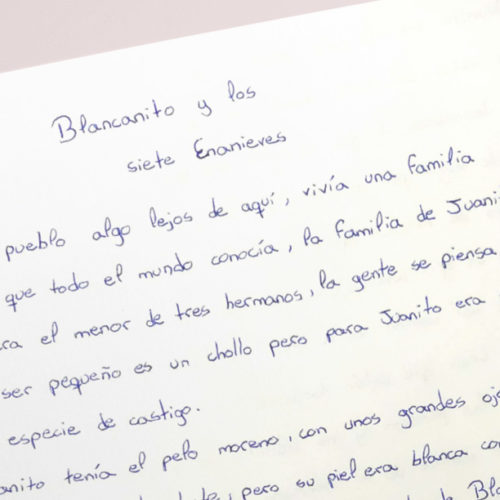 Blancanito y los
siete Enanieves
pueblo algo lejos de aquí, vivía una familia
que todo el mundo conocía, la familia de Juani
ra el menor de tres hermanos, la gente se piensa
ser pequeño es un chollo pero para Juanito era
especie de castigo.
anito tenía el pelo moreno, con unos grandes ojo
pero su piel era blanca co